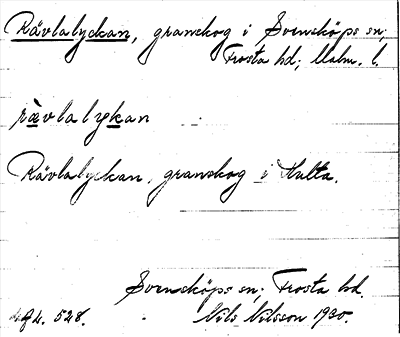 Rävlalyckan, granskog i Svensköps sn;
Frosta hd; Malm. l.
rävlalykan
Rävlalyckan, granskog i Hulta.
Svensköps sn; Frosta hd.
528. Nils Nilsson 1930.